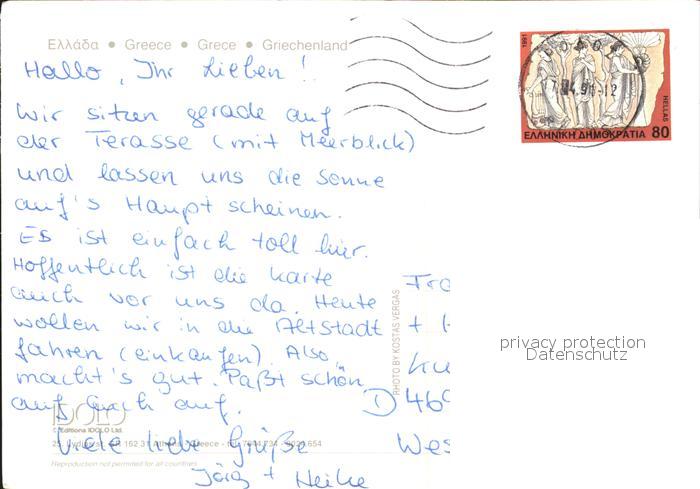 Ελλάδα • Greece • Grece • Griechenland
Hallo, Ihr Lieben!
Wir sitzen gerade auf
der Terasse (mit Meerblick)
und lassen uns die Sonne
auf's Haupt scheinen.
Es ist einfach toll hier.
Hoffentlich ist die Karte
auch vor uns da. Heute
wollen wir in die Altstadt
fahren (einkaufen). Also
macht's gut. Paßt schön
auf Euch auf.
Viele liebe Grüße
Jörg + Heike
1991
HELLAS
ΕΛΛΗΝΙΚΗ ΔΗΜΟΚΡΑΤΙΑ 80
PHOTO BY KOSTAS VERGAS
+
D 46
Wes
privacy protection
Datenschutz
IDOLO
© Editions IDOLO Ltd.
162 31 Athens, Greece
Reproduction not permited for all countries